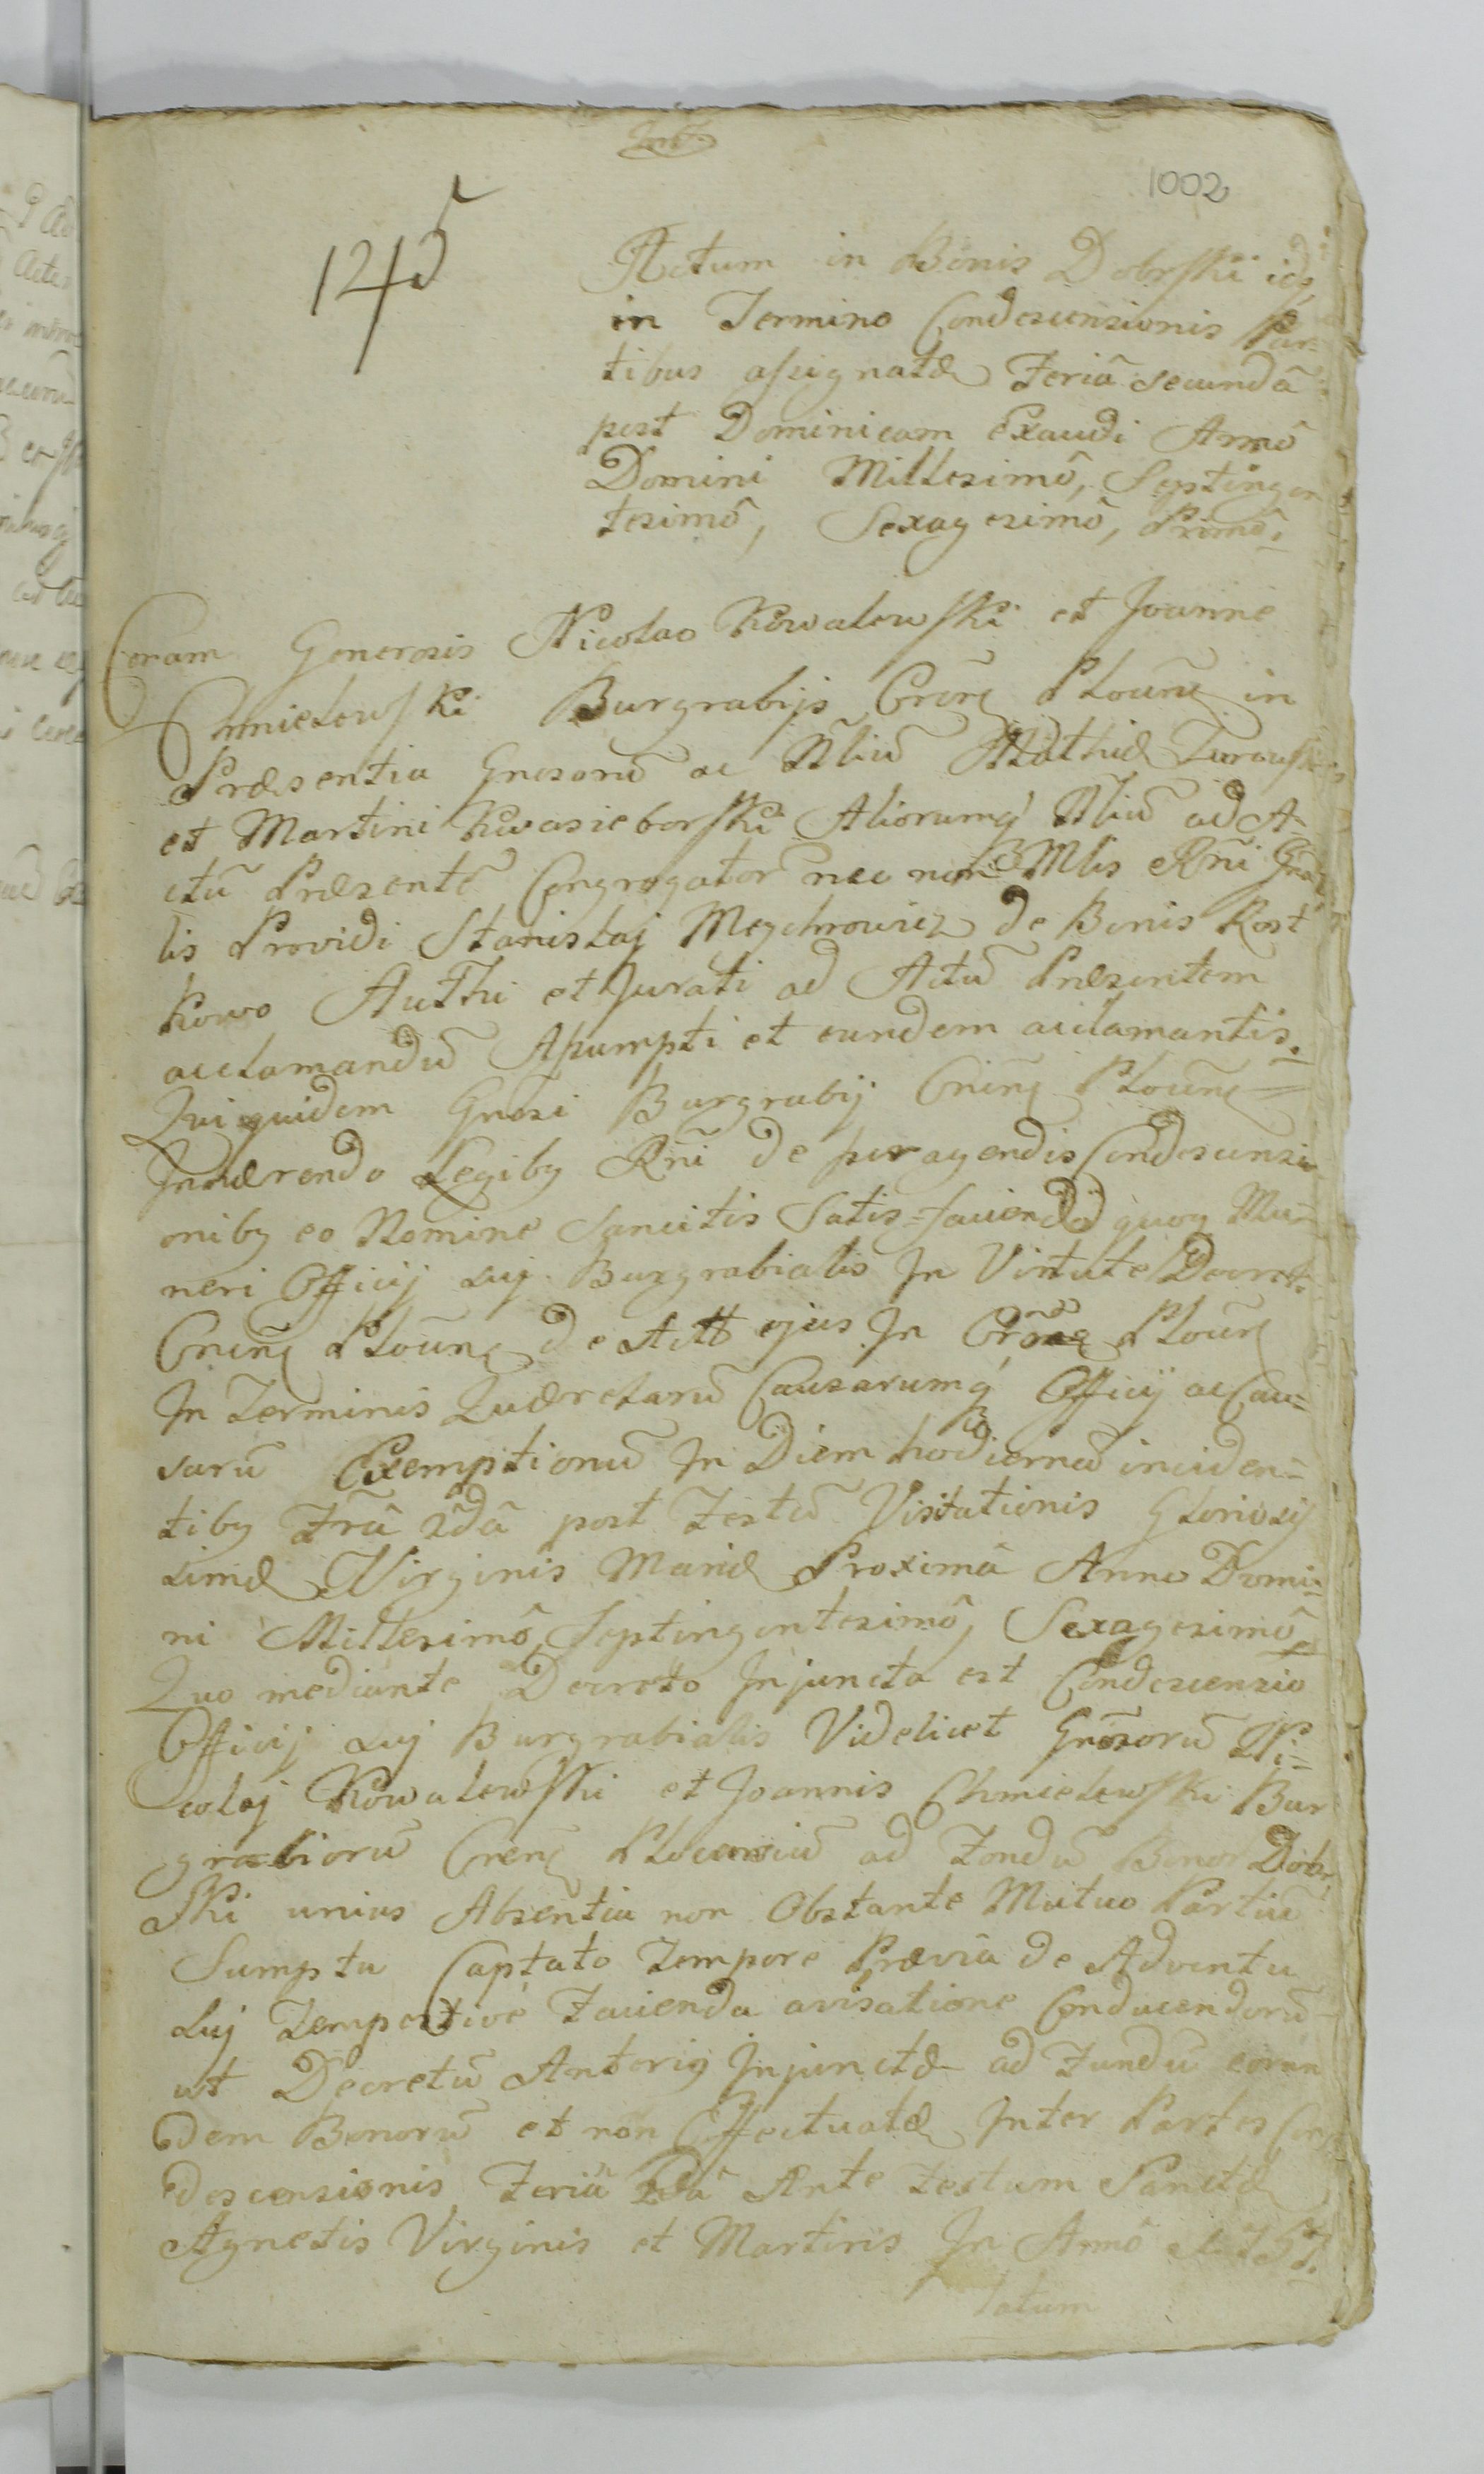 1002
1245
Actum in Bonis Dobrski idq
in Termino Condescensionis Par=
tibus assignatæ Feriâ secundâ
post Dominicam Exaudi Annô
Domini Millesimô, Septingen
tesimô, Sexagesimô, Primô.
Coram Generosis Nicolao Kowalewski et Joanne
Chmielewski Burgrabijs Crĕn̄ Ploceñ in
Præsentia Gnosorū ac Nliū Mathiæ Turowski
et Martini Kwasieborski Aliorumq́ Nliū ad A=
ctū Præsentē Congregator nec non Mlis Rñi Gña
lis Providi Stanislaj Meychrowicz de Bonis Rost
kowo Authi et Jurati ad Actū Præsentem
acclamandū Assumpti et eundem acclamantis.
Qui quidem Gnosi Burgrabij Cñen̄ Ploceñ
Inhærendo Legibq Rñi de peragendis Condescensi
onibq eo Nomine Sancitis Satis=faciendo quoq Mu=
neri Officij sui Burgrabialis In Virtute Decreti
Cñen̄ Ploceñ de Actt ejus In Ploceñ
In Terminis Querelarū Causarumq́ Officij ac Cau=
sarū Exemptionū In Diem hodiernā inciden=
tibq Frâ 2dâ post Festū Visitationis Gloriosis
simæ Virginis Mariæ Proximâ Anno Domi=
ni Millesimô, Septingentesimô, Sexagesimô
Quo mediante Decreto Injuncta est Condescensio
Officij sui Burgrabialis Videlicet Gnosorū Ni=
colaj Kowalewski et Joannis Chmielewski Bur
grabiorū Cren̄ Plocensiū ad Fondū Bonor Dobr
ski unius Absentia non Obstante Mutuo Partiū
Sumptu Captato Tempore Præviâ de Adventu
sui Tempestivé Facienda avisatione Conducendorū
ut Decretū Anteriq Injunctæ ad Fundū eorun
dem Bonorū et non Effectuatæ Inter Partes Con
descensionis Feriâ 2dâ Ante Festum Sanctæ
Agnetis Virginis et Martiris In Annô
latum